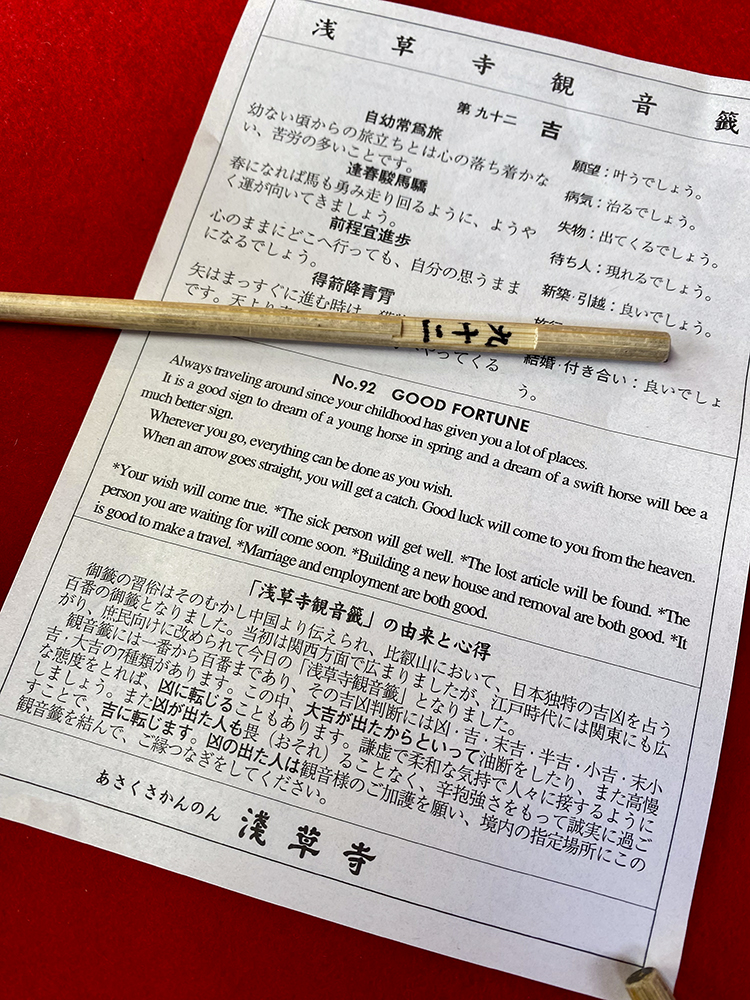 浅草寺観音籤
第九十二 吉
自幼常爲旅
幼ない頃からの旅立ちとは心の落ち着かな
い、苦労の多いことです。
逢春駿馬驕
春になれば馬も勇み走り回るように、ようや
く運が向いてきましょう。
前程宜進歩
心のままにどこへ行っても、自分の思うまま
になるでしょう。
得箭降青霄
矢はまっすぐに進む時は、
です。天より
やってくる
願望：叶うでしょう。
病気：治るでしょう。
失物：出てくるでしょう。
待ち人：現れるでしょう。
新築・引越：良いでしょう。
旅行
結婚・付き合い：良いでしょ
う。
九十二
No.92 GOOD FORTUNE
Always traveling around since your childhood has given you a lot of places.
It is a good sign to dream of a young horse in spring and a dream of a swift horse will bee a
much better sign.
Wherever you go, everything can be done as you wish.
When an arrow goes straight, you will get a catch. Good luck will come to you from the heaven.
*Your wish will come true. *The sick person will get well. *The lost article will be found. *The
person you are waiting for will come soon. *Building a new house and removal are both good. *It
is good to make a travel. *Marriage and employment are both good.
「浅草寺観音籤」の由来と心得
御籤の習俗はそのむかし中国より伝えられ、比叡山において、日本独特の吉凶を占う
百番の御籤となりました。当初は関西方面で広まりましたが、江戸時代には関東にも広
がり、庶民向けに改められて今日の「浅草寺観音籤」となりました。
観音籤には一番から百番まであり、その吉凶判断には凶・吉・末吉・半吉・小吉・末小
吉・大吉の7種類があります。この中、大吉が出たからといって油断をしたり、また高慢
な態度をとれば、凶に転じることもあります。謙虚で柔和な気持で人々に接するように
しましょう。また凶が出た人も畏（おそれ）ることなく、辛抱強さをもって誠実に過ご
すことで、吉に転じます。凶の出た人は観音様のご加護を願い、境内の指定場所にこの
観音籤を結んで、ご縁つなぎをしてください。
あさくさかんのん 淺草寺